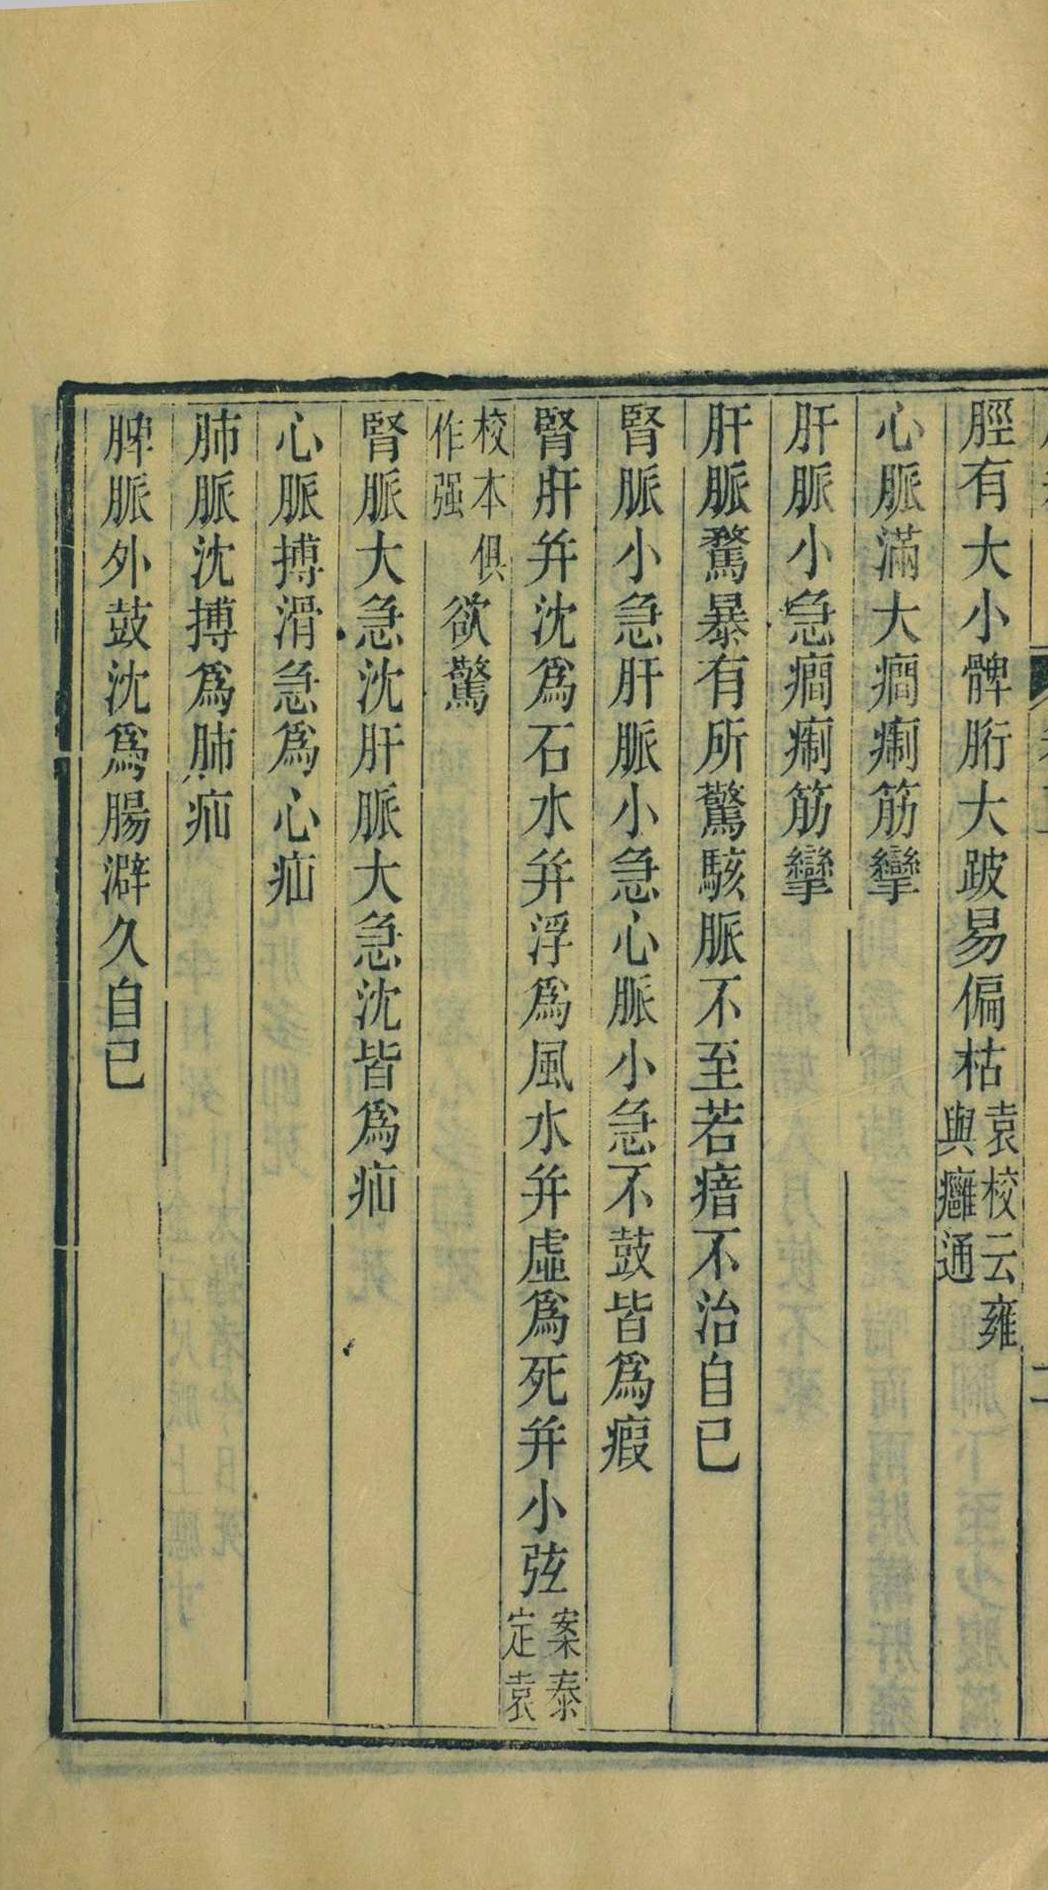 脛有大小髀胻大跛易偏枯袁校云雍與癰通
心脈滿大癇瘛筋攣
肝脈小急癇瘛筋攣
肝脈騖暴有所驚駭脈不至若瘖不治自已
腎脈小急肝脈小急心脈小急不鼓皆爲瘕
腎肝并沈爲石水并浮爲風水并虛爲死并小弦案泰定袁
校本俱作强欲驚
腎脈大急沈肝脈大急沈皆爲疝
心脈搏滑急爲心疝
肺脈沈搏爲肺疝
脾脈外鼓沈爲腸澼久自已